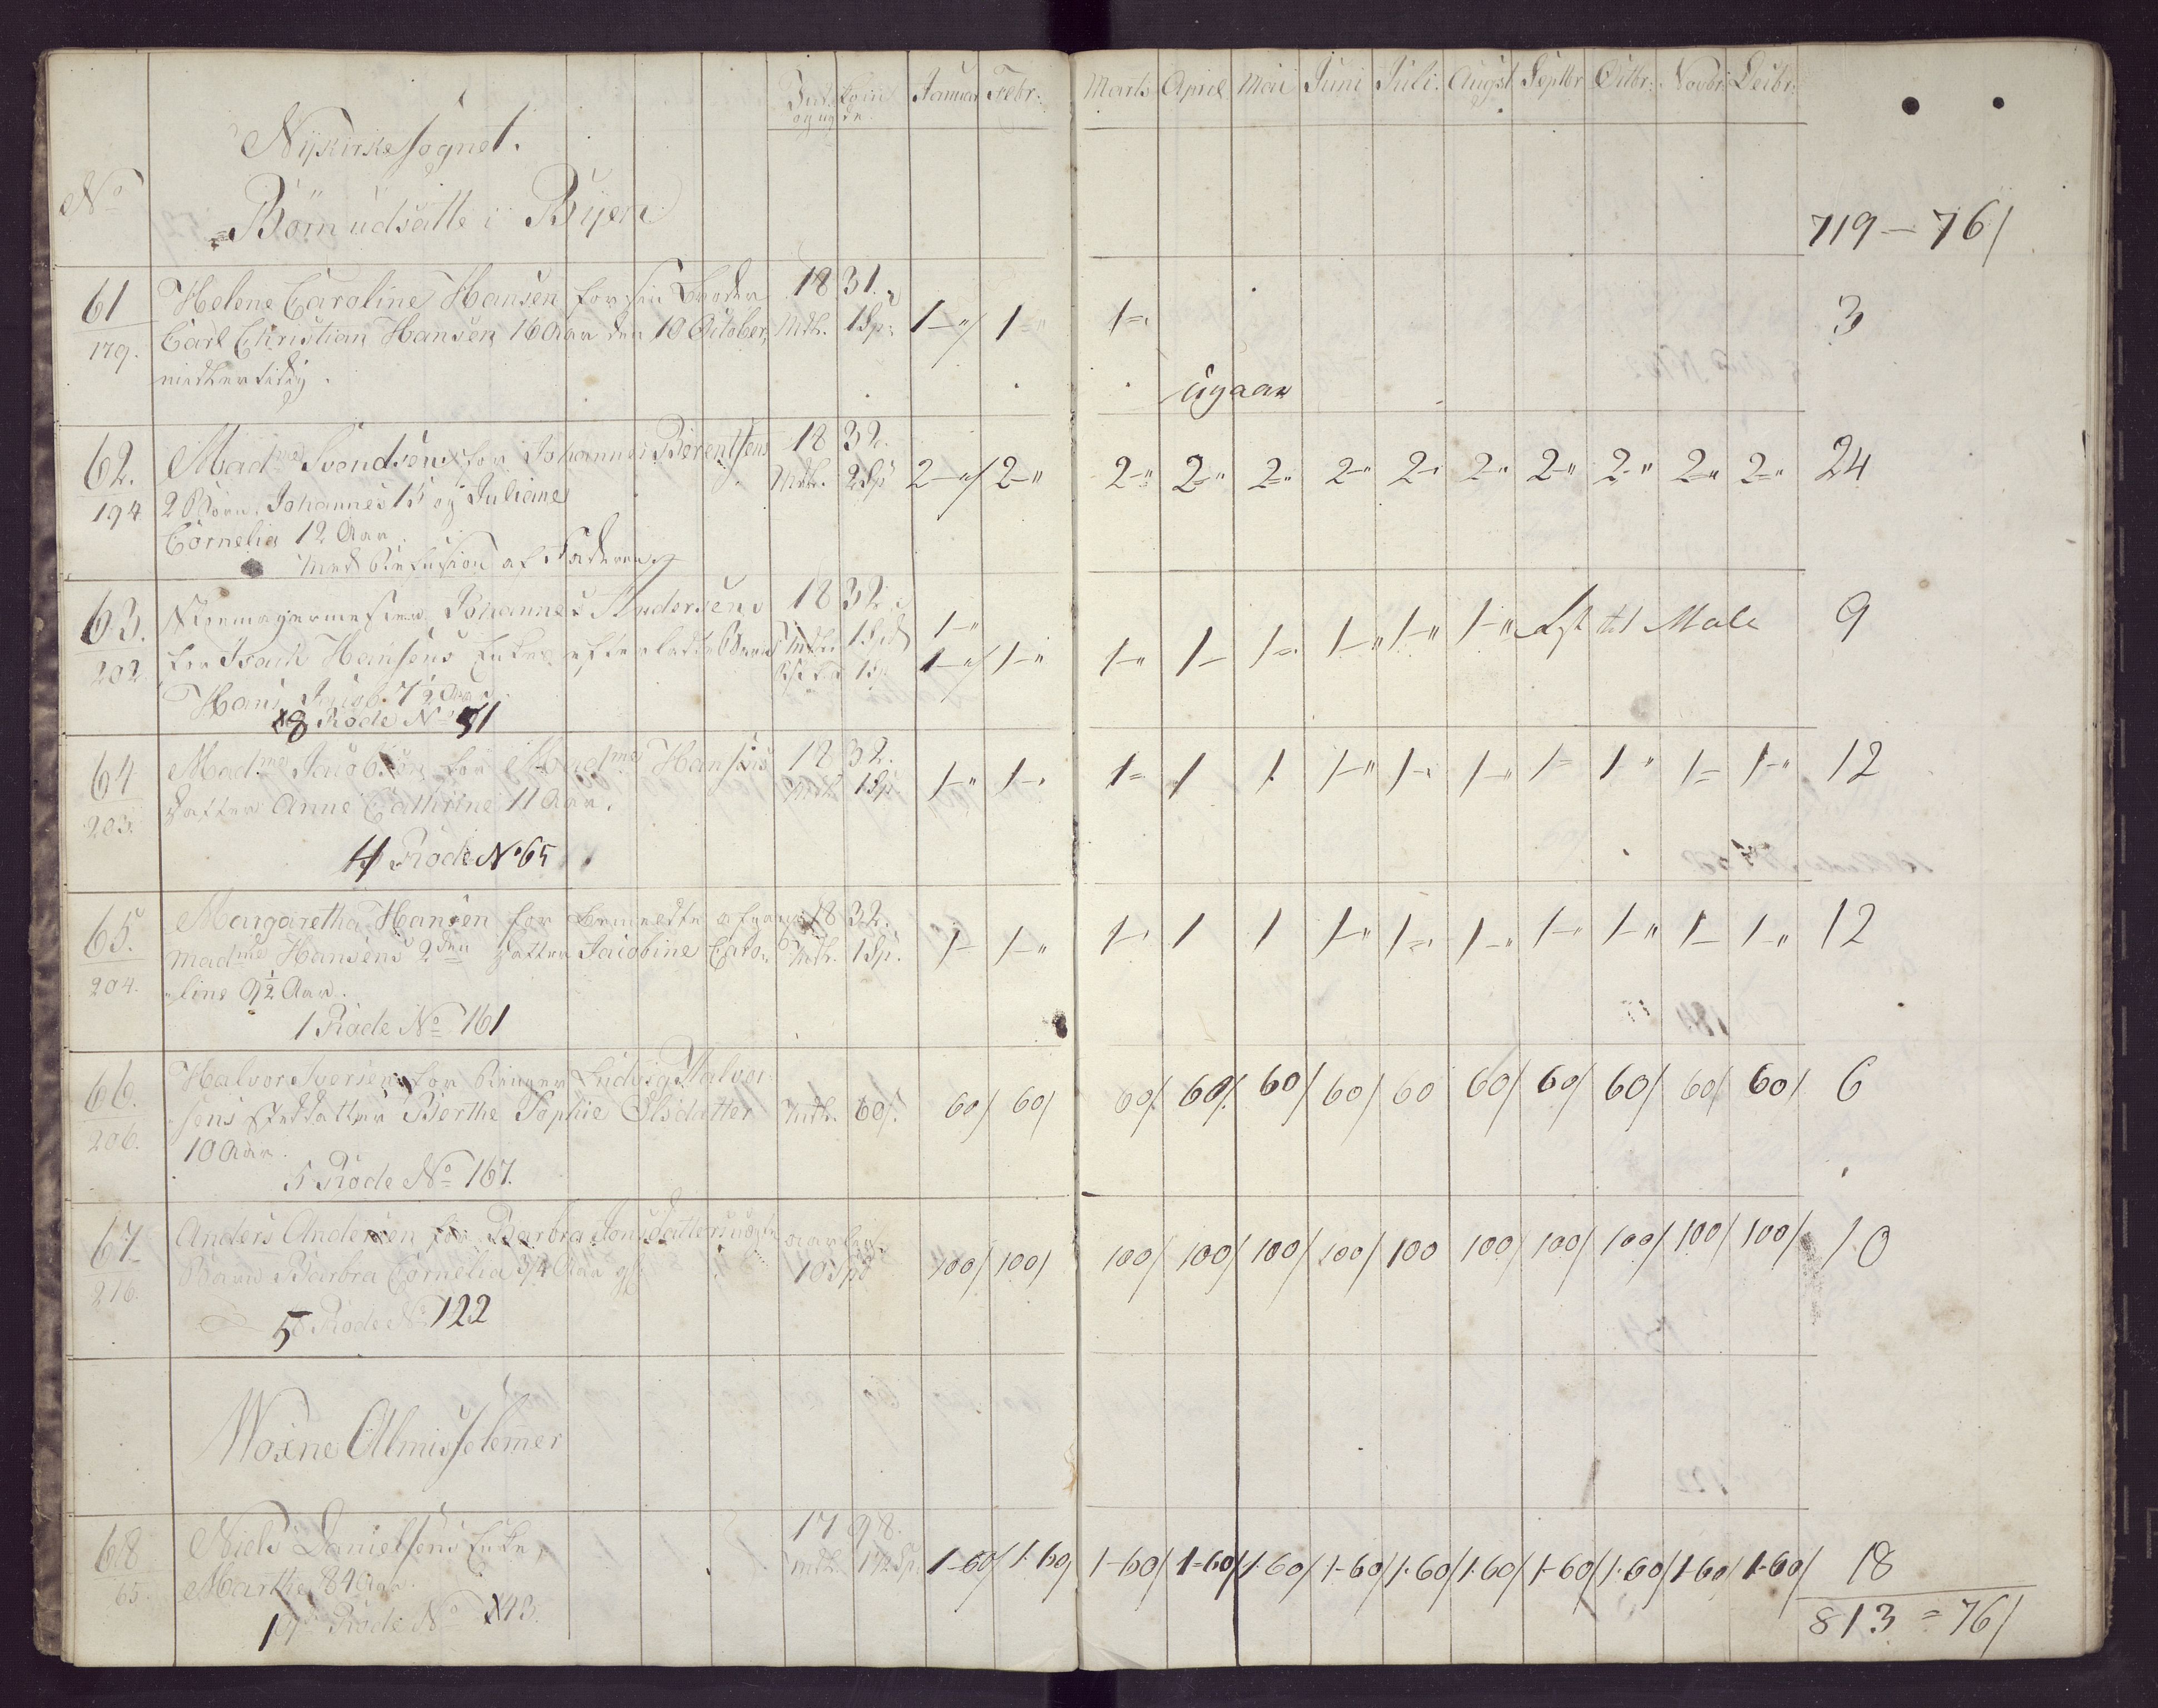 Nÿkirke sognet.
No
Börn udsatte i Bÿen
Indkom og ugde. Januar Febr: Marts April Mai Juni Juli: Augst Septbr Octbr: Novbr: Decbr:
719 - 76/
61 Helene Caroline Hansen for sin Broder 1831.
179. Carl Christian Hansen 16 Aar den 10 October, Mdl. 1 Sp: 1-"/ 1-" 1-" 3
udgaar
62. Madme Svendsen for Johannes Berentsens 1832.
194 2 Börn, Johannes 15 og Juliane Mdl. 2 Sp 2-"/ 2-" 2-" 2-" 2-" 2-" 2-" 2-" 2-" 2-" 2-" 2-" 24
Cornelia 12 Aar.
med Refusion af Faderen
63. Johannes Andersen 1832
202 for Isach Hansens Enkes efterladte Barn Mdl. 1 Spd 1-"
1-"/ 1-" 1-" 1- 1-" 1-" 1-" 1-" 9
Hans Jacob 7½ Aar
8 Rode No 51
64 Madme Jacobsen for Madme Hansens 1832.
203. Datter Anne Cathrine 11 Aar. Mdl. 1 Sp 1-" 1-" 1= 1 1 1-" 1-" 1-" 1= 1 " 1= 1-" 12
4 Rode No 65
65. Margaretha Hansen for 1832.
204. Madme Hansens 2den Datter Jacobine Caro- Mdl. 1 Sp. 1- 1-" 1-" 1 1 1-" 1-" 1-" 1-" 1-" 1- 1-" 12
line 9½ Aar.
1 Rode No 161
66. Halvor Iversen for Ludvig Halvor
206. sens Steddatter Berthe Sophie Olsdatter Mdl. 60/. 60/ 60/ 60/. 60/. 60/ 60/ 60 60/ 60/ 60/ 60/ 60/ 6
10 Aar.
5 Rode No 167.
67 Anders Andersen for Barbra Jonsdatters aarlig
216. Barn Barbra Cornelia 3/4 Aar gl: 10 Spd 100/ 100/ 100/ 100/ 100/ 100/ 100 100/ 100/ 100/ 100/ 100/ 10
5 Rode No 122
Woxne Almisselemmer
68 Niels Danielsens Enke, 1798.
65. Marthe 84 Aar. Mdl. 1½ Sp. 1-60/ 1-60/ 1-60/ 1-60/ 1-60/ 1-60/ 1-60/ 1-60/ 1-60/ 1-60/ 1-60/ 1-60/ 18
Rode No 43.
813 = 76/